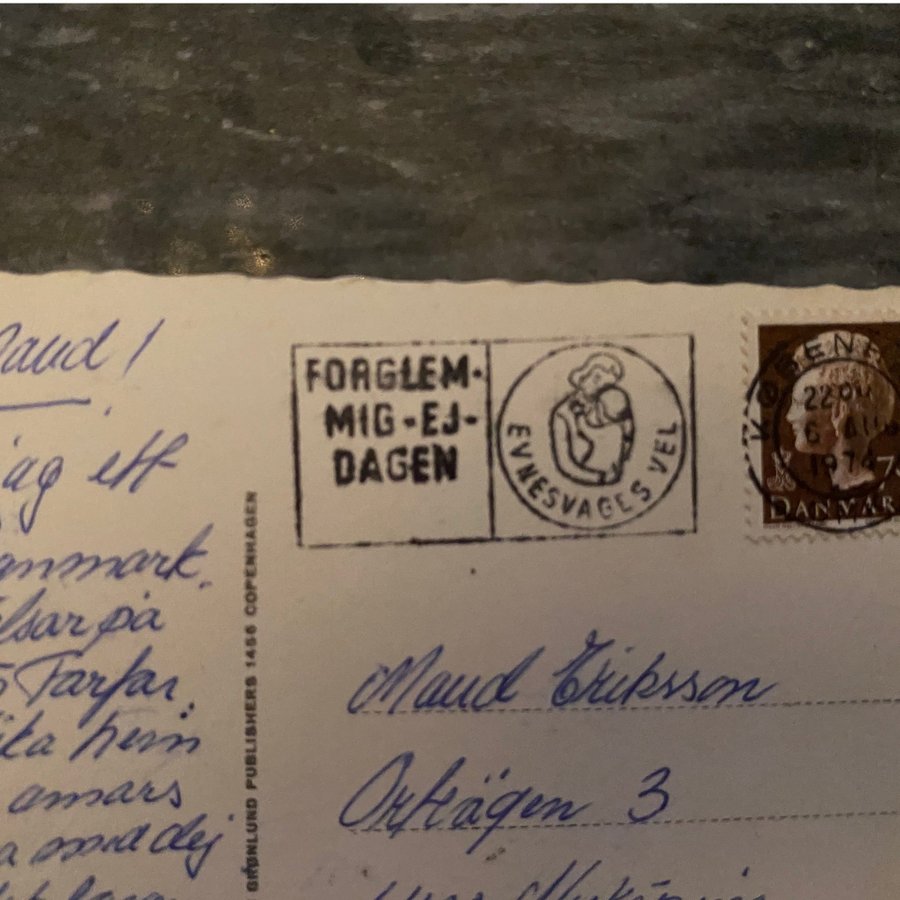 Maud!
jag ett
Danmark.
hälsar på
Farfar.
hem
annars
med dej
FORGLEM-
MIG-EJ-
DAGEN
EVNESVAGES VEL
KØBENH
22
6 AUG
1974
DANMARK
GRØNLUND PUBLISHERS 1456 COPENHAGEN
Maud Eriksson
Ortvägen 3